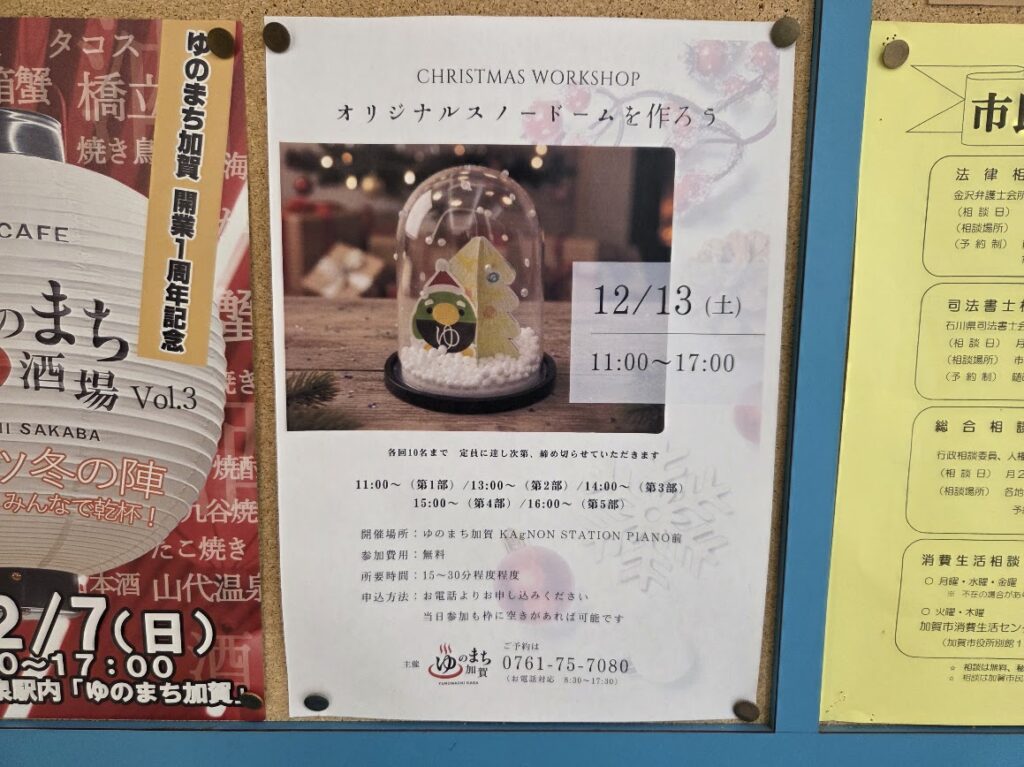 タコス
箱蟹
橋立
焼き鳥
海
ゆのまち加賀 開業1周年記念
CAFE
のまち
酒場 Vol.3
HI SAKABA
蟹
焼き
ツ冬の陣
みんなで乾杯!
焼酎
九谷焼
たこ焼き
日本酒 山代温泉
酒
2/7(日)
0~17:00
駅内「ゆのまち加賀」
CHRISTMAS WORKSHOP
オリジナルスノードームを作ろう
ゆ
12/13 (土)
11:00~17:00
各回10名まで 定員に達し次第、締め切らせていただきます
11:00~(第1部)/13:00~(第2部)/14:00~(第3部)
15:00~(第4部)/16:00~(第5部)
開催場所:ゆのまち加賀 KAgNON STATION PIANO前
参加費用:無料
所要時間:15~30分程度程度
申込方法:お電話よりお申し込みください
当日参加も枠に空きがあれば可能です
主催
ゆのまち
加賀
YUNOMACHI KAGA
ご予約は
0761-75-7080
(お電話対応 8:30~17:30)
市
法律相
金沢弁護士会
(相談日)
(相談場所)
(予約制)
司法書士
石川県司法書士会
(相談日) 月
(相談場所) 市
(予約制) 随
総合相談
行政相談委員、人権
(相談日) 月2
(相談場所) 各地
予
消費生活相談
○ 月曜・水曜・金曜
※ 不在の場合があ
○ 火曜・木曜
加賀市消費生活セン
(加賀市役所別館1
○ 相談は無料、秘
○ 相談は加賀市民